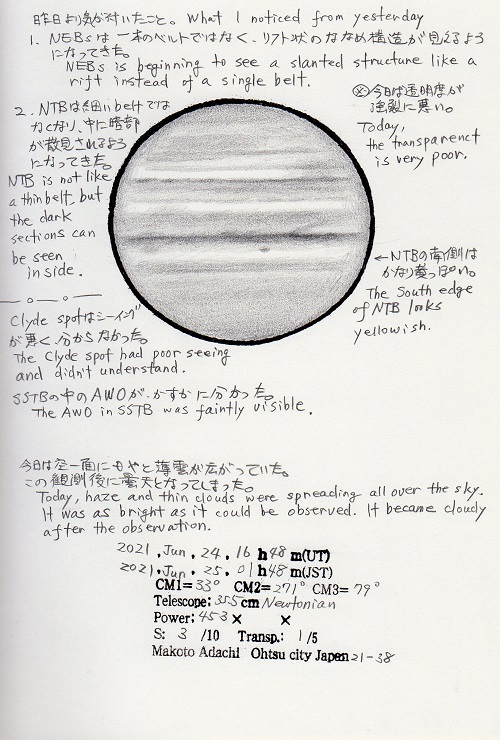 昨日より気が付いたこと。What I noticed from yesterday
1. NEBsは一本のベルトではなく、リフト状のななめ構造が見えるよう
になってきた。
NEBs is beginning to see a slanted structure like a
rift instead of a single belt.
2. NTBは細いbeltでは
なくなり、中に暗部
が散見されるよう
になってきた。
NTB is not like
a thin belt, but
the dark
sections can
be seen
inside.
ⓧ今日は透明度が
強烈に悪い。
Today,
the transparenct
is very poor.
←NTBの南側は
かなり黄っぽい。
The South edge
of NTB looks
yellowish.
Clyde spotはシーイング
が悪く、分からなかった。
The Clyde spot had poor seeing
and didn't understand.
SSTBの中のAWOが、かすかに分った。
The AWO in SSTB was faintly visible.
今日は空一角にもやと薄雲が広がっていた。
この観測後に曇天となってしまった。
Today, haze and thin clouds were spreading all over the sky.
It was as bright as it could be observed. It became cloudy
after the observation.
2021, Jun. 24. 16 h 48 m(UT)
2021, Jun. 25. 01 h 48 m(JST)
CM1= 33° CM2= 271° CM3= 79°
Telescope: 355 cm Newtonian
Power: 453 × ×
S: 3 /10 Transp.: 1 /5
Makoto Adachi Ohtsu city Japan 21-38